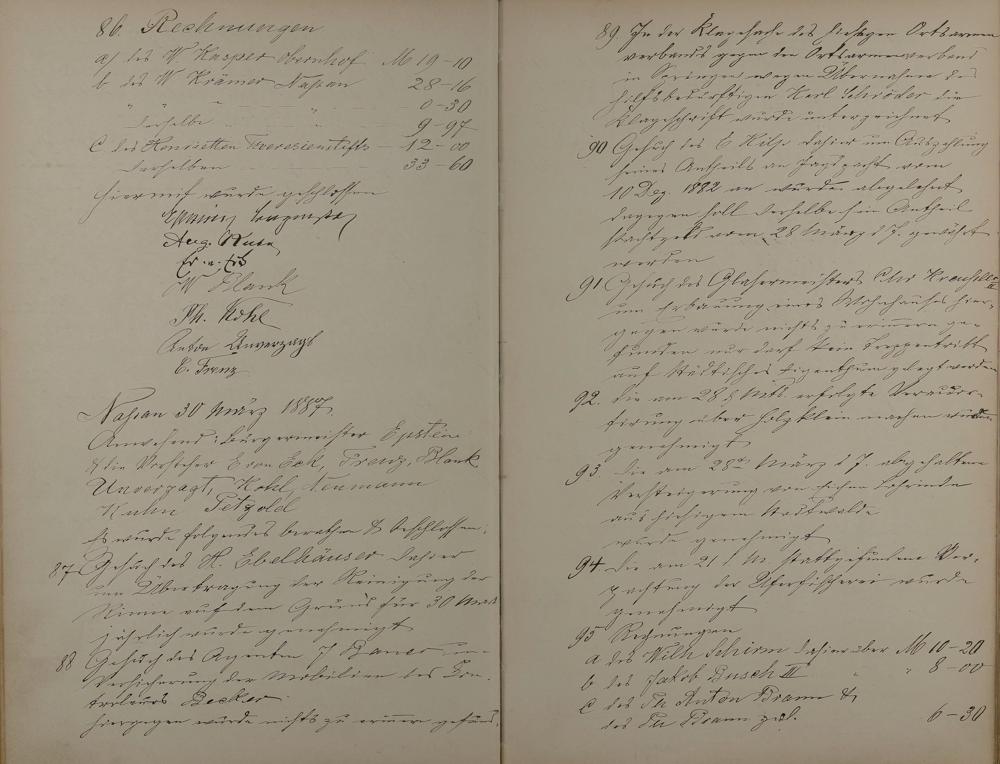 86. Rechnungen
a) des W. Kasper Obernhof M 19-10
b des W Krämer Nassau 28-16
" " " " 0-30
derselbe " 9-97
c des Henrietten Theresienstifts 12-00
desselben 33-60
Hiermit wurde geschlossen
Aug. Kuhn
W Blank
Ph. Kohl
Anton Unverzagt
C. Frenz
Nassau 30 März 1887.
Anwesend: Bürgermeister Epstein
& die Vorsteher E von Eck, Frenz, Blank
Unverzagt, Kohl, Neumann
Kuhn Petzold
Es wurde folgendes berathen & beschlossen:
87 Gesuch des H. Ebelhäuser dahier
um Übertragung der Reinigung der
Rinne auf dem Grund für 30 Mark
jährlich wurde genehmigt
88 Gesuch des Agenten J Bauer um
Versicherung der Mobilien des Con-
troleurs Becker
hiergegen wurde nichts zu erinnern gefund.
89 In der Klagesache des hiesigen Ortsarmen
verbands gegen den Ortsarmenverband
in wegen Übernahme des
hilfsbedürftigen Karl Schröder die
Klageschrift wurde unterzeichnet
90 Gesuch des E Hilp dahier um Auszahlung
seines Antheils an Jagdpacht vom
10 Dez. 1882 an wurde abgelehnt
dagegen soll derselbe sein Antheil
Pachtgeld vom 28 März d J. gewährt
werden
91 Gesuch des Glasermeisters
um Erbauung eines Wohnhauses hier-
gegen wurde nichts zu erinnern ge-
funden nur darf kein Treppentritt
auf städtisches Eigenthum gelegt werden
92. Die am 28 d Mts. erfolgte Veraccor-
dirung über Holzklein machen wurde
genehmigt
93 Die am 28ten März d J. abgehaltene
Versteigerung von Eichen Lohrinde
aus hiesigem Stadtwalde
wurde genehmigt
94 Die am 21 l M stattgefundene Ver-
pachtung der Uferfischerei wurde
genehmigt
95 Rechnungen
a des Wilh Schirm dahier über M 10-20
b des Jakob Busch III " 8-00
c des Ph Anton Braun &
des Ph Braun zus. 6-30